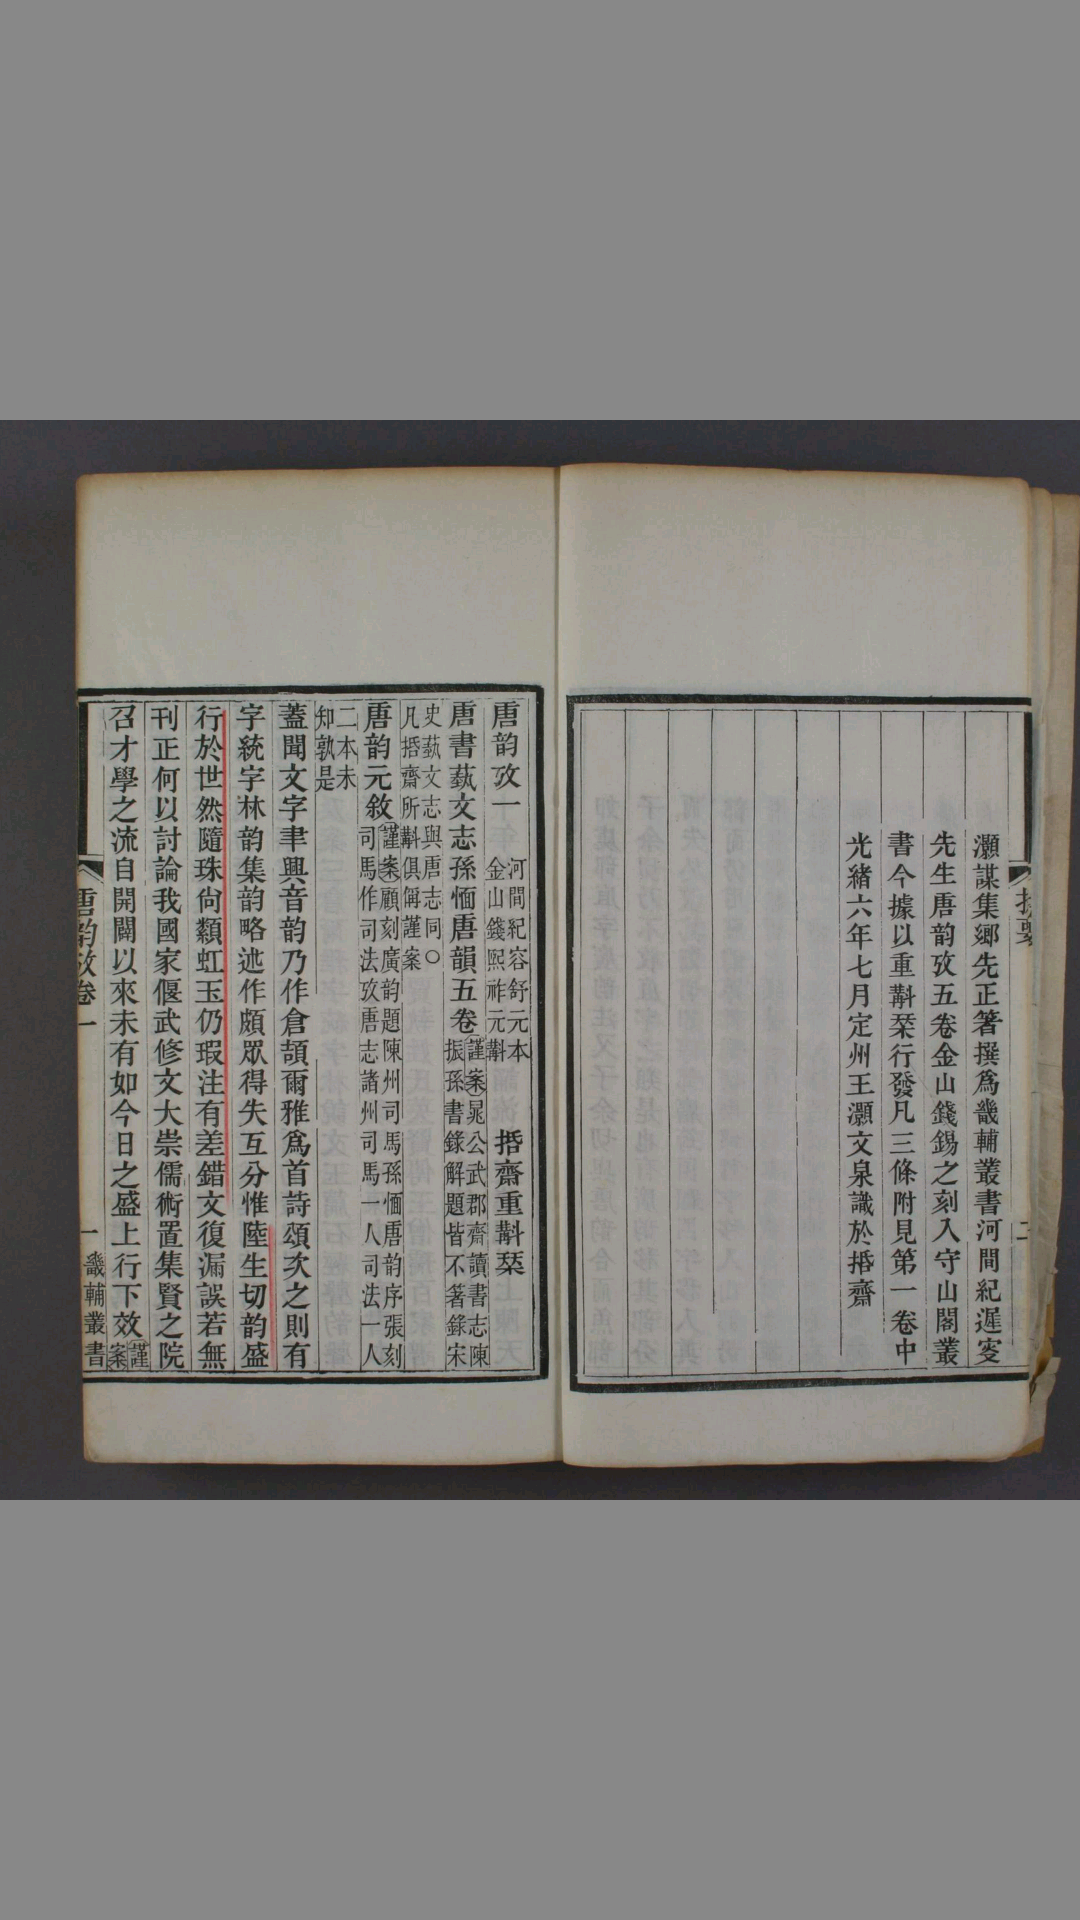 灝謀集鄉先正箸撰爲畿輔叢書河間紀遲叜
先生唐韵攷五卷金山錢錫之刻入守山閣叢
書今據以重斠栞行發凡三條附見第一卷中
光緒六年七月定州王灝文泉識於揗齋
二
唐韵攷一
河間紀容舒元本
金山錢熙祚元斠
揗齋重斠栞
唐書蓺文志孫愐唐韻五卷
謹案晁公武郡齋讀書志陳
振孫書錄解題皆不箸錄宋
史蓺文志與唐志同○
凡揗齋所斠俱偁謹案
唐韵元敘
謹案顧刻廣韵題陳州司馬孫愐唐韵序張刻
司馬作司法攷唐志諸州司馬一人司法一人
二本未
知孰是
蓋聞文字聿興音韵乃作倉頡爾雅爲首詩頌次之則有
字統字林韵集韵略述作頗眾得失互分惟陸生切韵盛
行於世然隨珠尙纇虹玉仍瑕注有差錯文復漏誤若無
刊正何以討論我國家偃武修文大崇儒術置集賢之院
召才學之流自開闢以來未有如今日之盛上行下效
謹
案
唐韵攷卷一
一
畿輔叢書